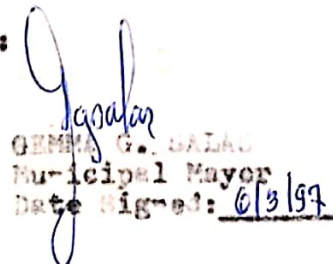 :
GEMMA G. SALAS
Municipal Mayor
Date Signed: 6/3/97